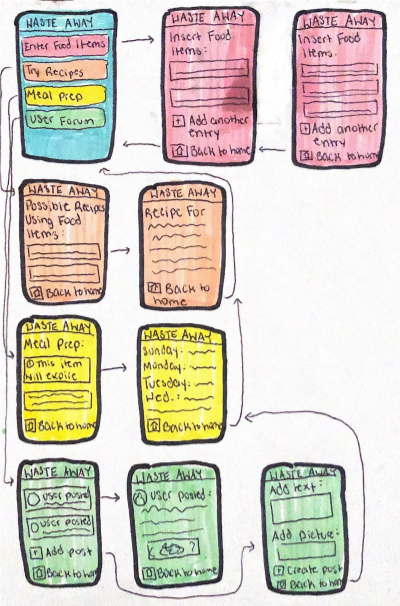 WASTE AWAY
Enter Food items
Try Recipes
Meal Prep
User Forum
WASTE AWAY
Insert Food
Items:
+ Add another
entry
Back to home
WASTE AWAY
Insert Food
Items:
+ Add another
entry
Back to home
WASTE AWAY
Possible Recipes
Using Food
Items:
Back to home
WASTE AWAY
Recipe For
Back to
home
WASTE AWAY
Meal Prep:
! This item
will expire
Back to home
WASTE AWAY
Sunday:
Monday:
Tuesday:
Wed.:
Back to home
WASTE AWAY
User posted
User posted
+ Add post
Back to home
WASTE AWAY
User posted:
?
Back to home
WASTE AWAY
Add text:
Add picture:
+ Create post
Back to home